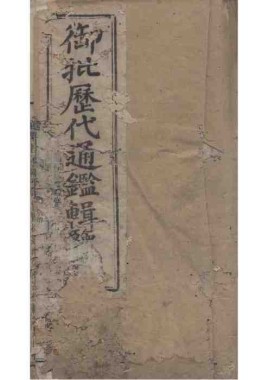 御批歷代通鑑輯